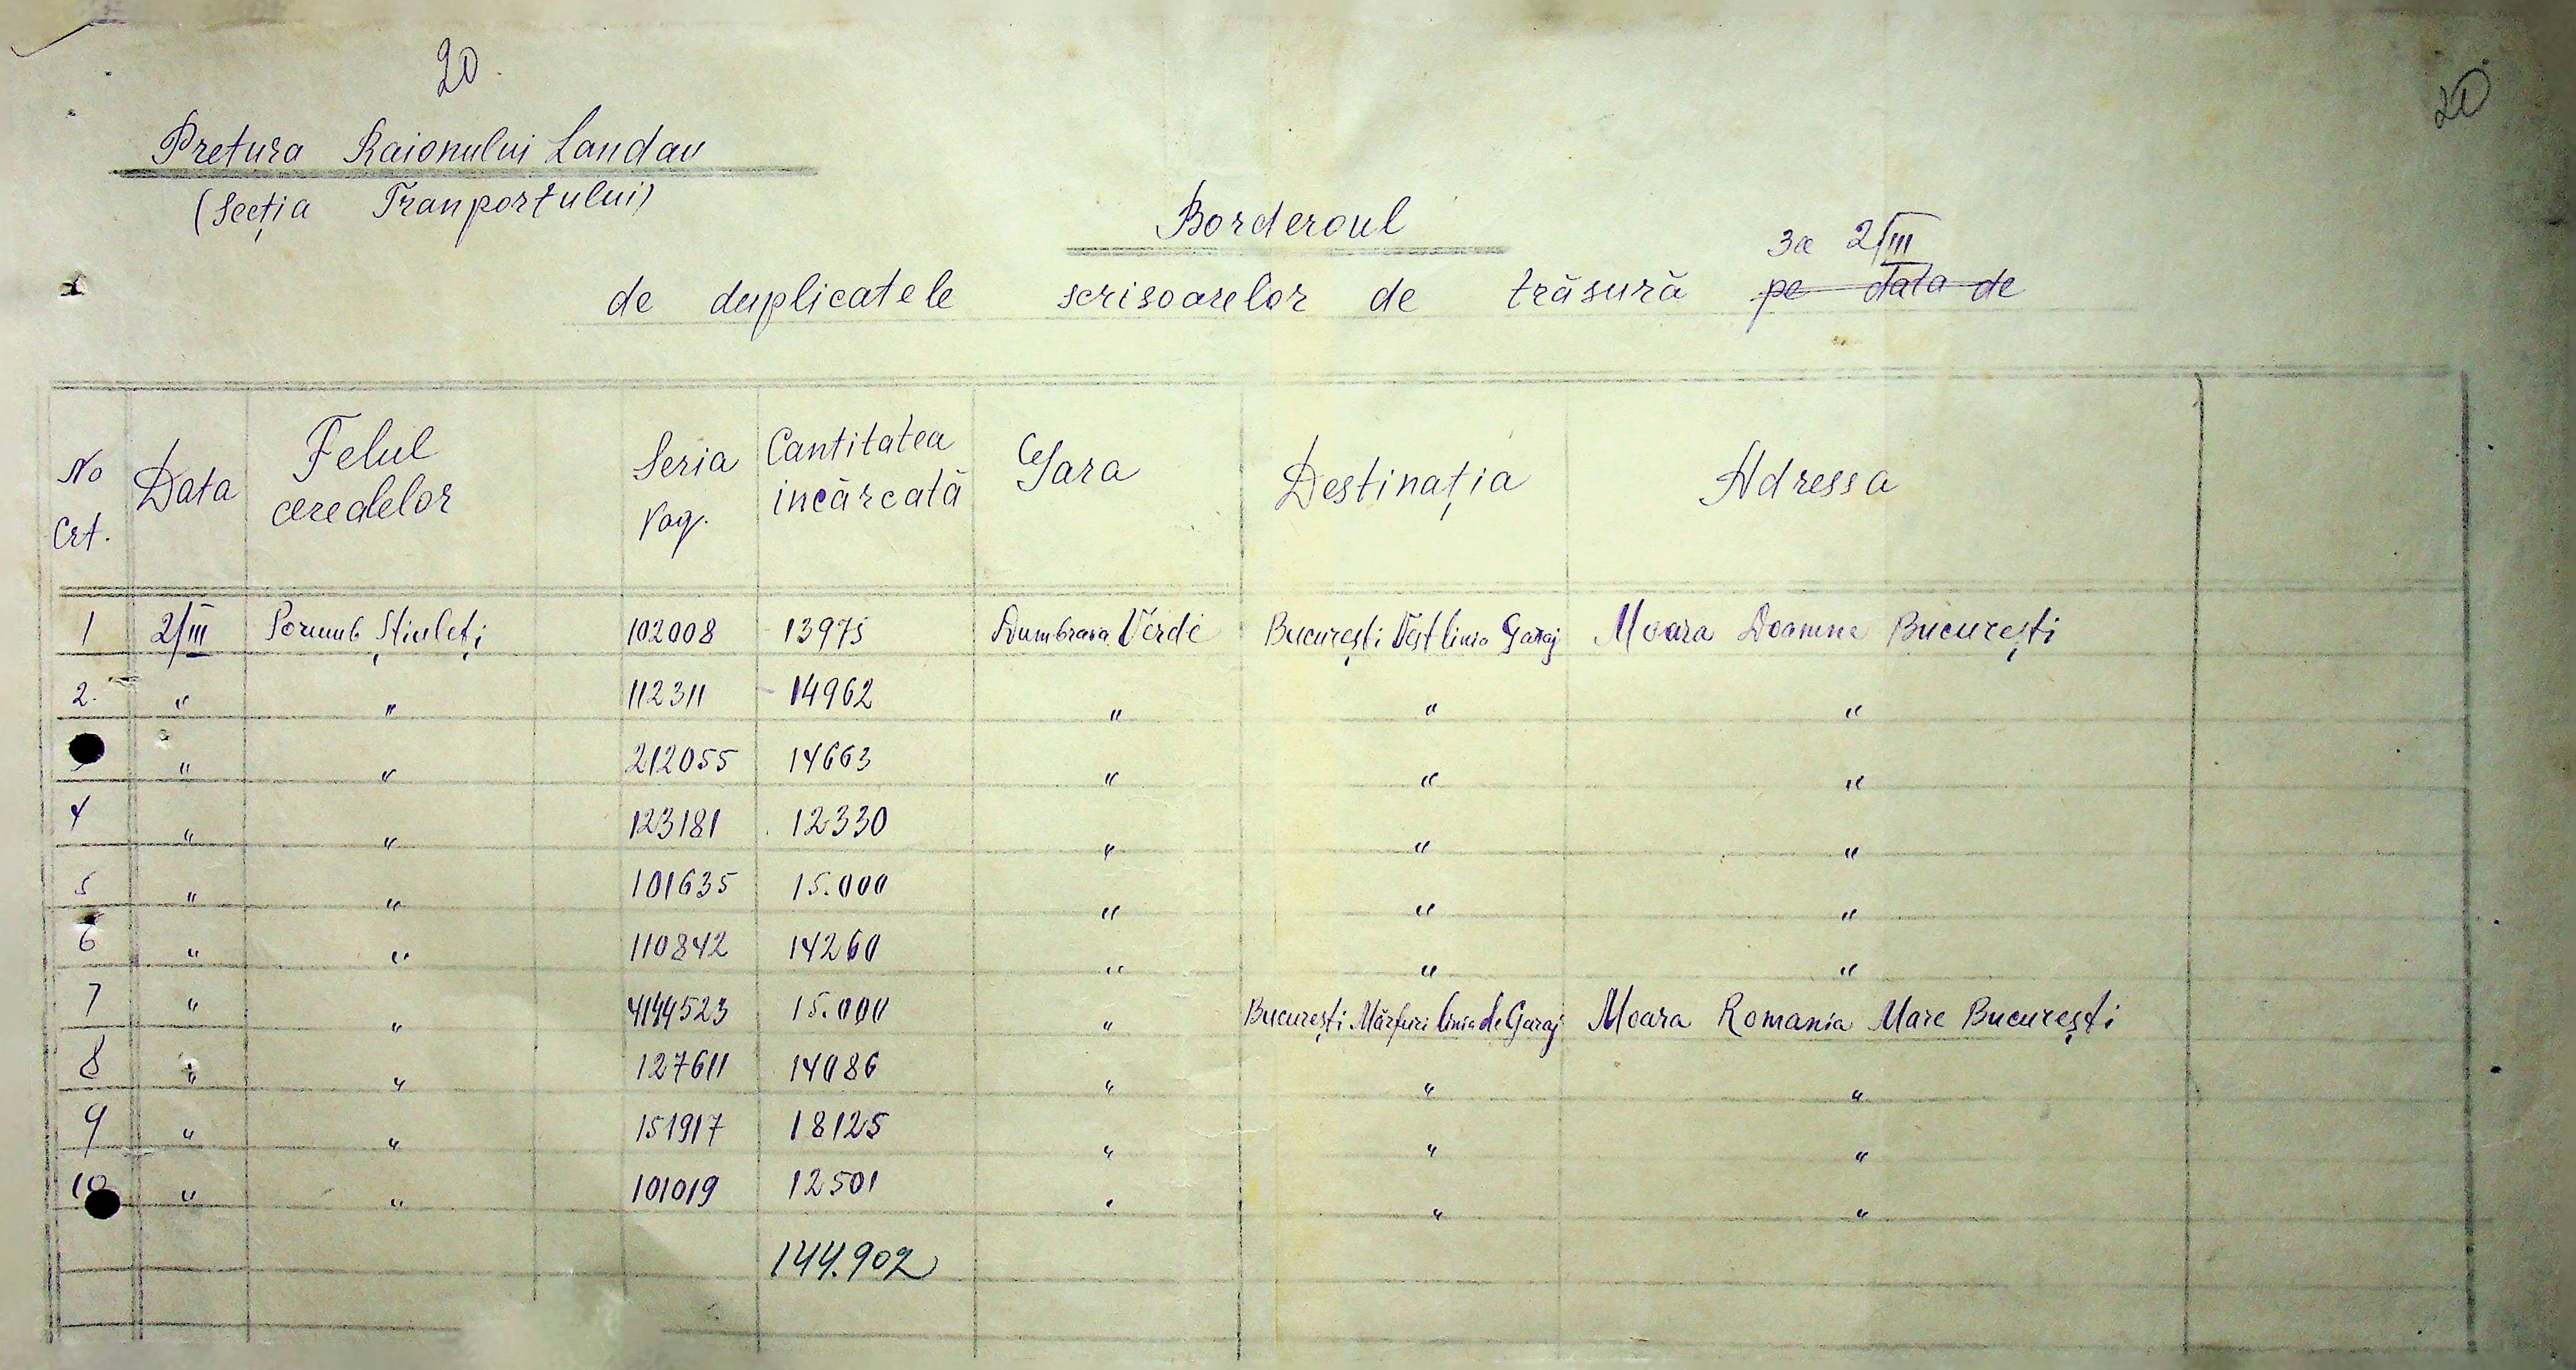 20.
20
Pretura Raionului Landau
(Secția Tranportului)
Borderoul
за 2/III
de duplicatele scrisoarelor de trăsură pe data de
No Crt. Data Felul cerealelor Seria vag. Cantitatea incărcată Gara Destinația Adressa
1 2/III Porumb Știuleți 102008 13975 Dumbrava Verde București Vest linia Garaj Moara Doamnei București
2. " " 112311 14962 " " "
" " 212055 14663 " " "
4 " " 123181 12330 " " "
5 " " 101635 15.000 " " "
6 " " 110842 14260 " " "
7 " " 4144523 15.000 " București Mărfuri linia de Garaj Moara Romania Mare București
8 " " 127611 14086 " " "
9 " " 151917 18125 " " "
10 " " 101019 12501 " " "
144.902